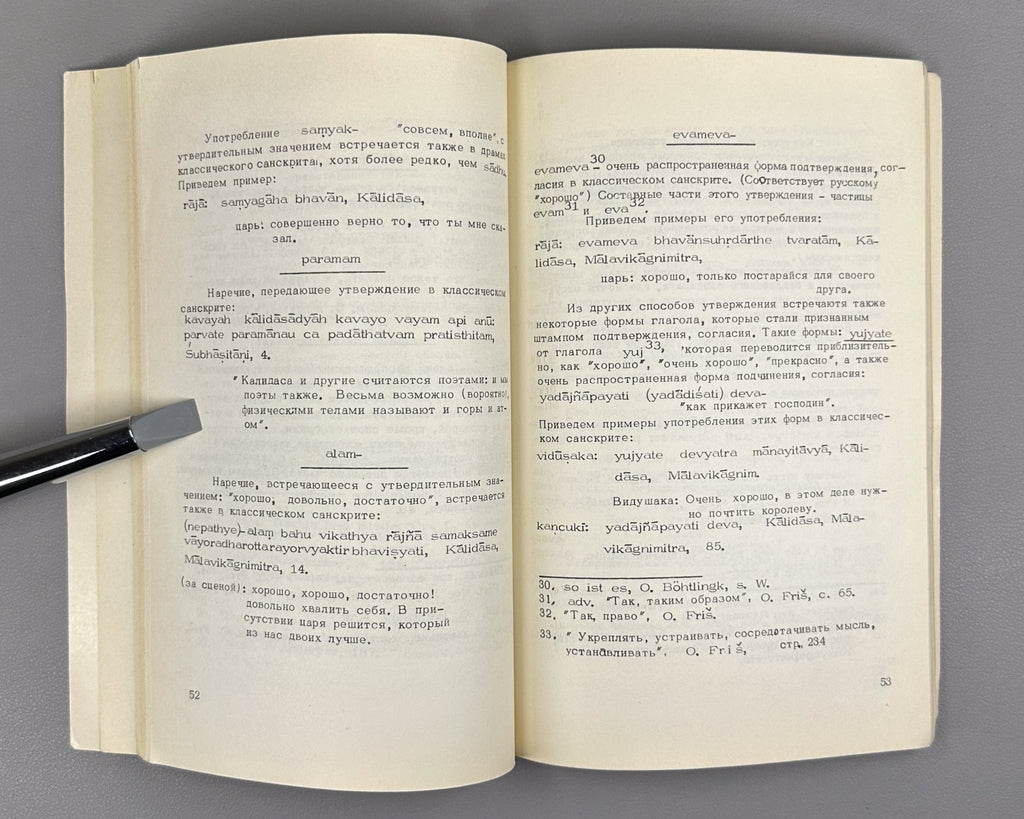 Употребление saṃyak- "совсем, вполне", с
утвердительным значением встречается также в драмах
классического санскрита, хотя более редко, чем sādhu.
Приведем пример:
rājā: saṃyagāha bhavān, Kālidāsa,
царь: совершенно верно то, что ты мне ска-
зал.
paramam
Наречие, передающее утверждение в классическом
санскрите:
kavayah kālidāsādyāh kavayo vayam api anū:
parvate paramānau ca padāthatvam pratisthitam,
Śubhāṣitāṇi, 4.
"Калидаса и другие считаются поэтами: и мы
поэты также. Весьма возможно (вероятно),
физическими телами называют и горы и ат-
ом".
alam-
Наречие, встречающееся с утвердительным зна-
чением: "хорошо, довольно, достаточно", встречается
также в классическом санскрите:
(nepathye)-alaṃ bahu vikathya rājñā samaksame
vāyoradharottarayorvyaktir bhaviṣyati, Kālidāsa,
Mālavikāgnimitra, 14.
(за сценой): хорошо, хорошо, достаточно!
довольно хвалить себя. В при-
сутствии царя решится, который
из нас двоих лучше.
52
evameva-
evameva30 – очень распространенная форма подтверждения, сог-
ласия в классическом санскрите. (Соответствует русскому
"хорошо") Составные части этого утверждения – частицы
evam31 и eva32.
Приведем примеры его употребления:
rājā: evameva bhavānsuhṛdārthe tvaratām, Kā-
lidāsa, Mālavikāgnimitra,
царь: хорошо, только постарайся для своего
друга.
Из других способов утверждения встречаютя также
некоторые формы глагола, которые стали признанным
штампом подтверждения, согласия. Такие формы: yujyate
от глагола yuj33, 'которая переводится приблизитель-
но, как "хорошо", "очень хорошо", "прекрасно", а также
очень распространенная форма подчинения, согласия:
yadājñāpayati (yadādiśati) deva-
"как прикажет господин".
Приведем примеры употребления этих форм в классичес-
ком санскрите:
vidūṣaka: yujyate devyatra mānayitāvyā, Kāli-
dāsa, Mālavikāgnim.
Видушака: Очень хорошо, в этом деле нуж-
но почтить королеву.
kaṇcukī: yadājñāpayati deva, Kālidāsa, Māla-
vikāgnimitra, 85.
30. so ist es, O. Böhtlingk, s. W.
31, adv. "Так, таким образом", O. Friš, c. 65.
32. "Так, право", O. Friš.
33. " Укреплять, устраивать, сосредотачивать мысль,
устанавливать", O. Friš, стр. 234
53